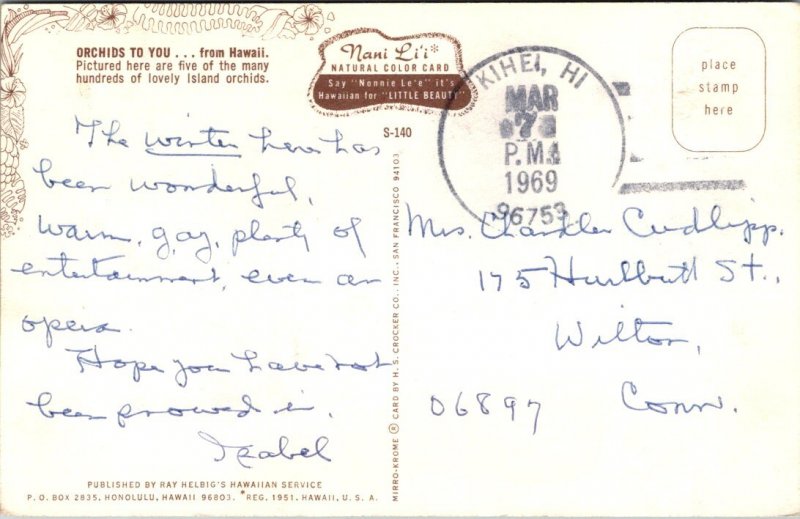 ORCHIDS TO YOU . . . from Hawaii.
Pictured here are five of the many
hundreds of lovely Island orchids.
Nani Li'i*
NATURAL COLOR CARD
Say "Nonnie Le'e" it's
Hawaiian for "LITTLE BEAUTY"
S-140
KIHEI, HI
MAR
7
P.M.
1969
96753
place
stamp
here
The winter here has
been wonderful,
warm, gay, plenty of
entertainment, even an
opera.
Hope you have not
been snowed in.
Izabel
Mrs. Chandler Cudlipp.
175 Hurlbutt St.,
Wilton,
06897 Conn.
MIRRO-KROME ® CARD BY H. S. CROCKER CO., INC., SAN FRANCISCO 94103
PUBLISHED BY RAY HELBIG'S HAWAIIAN SERVICE
P. O. BOX 2835, HONOLULU, HAWAII 96803. *REG. 1951, HAWAII, U. S. A.